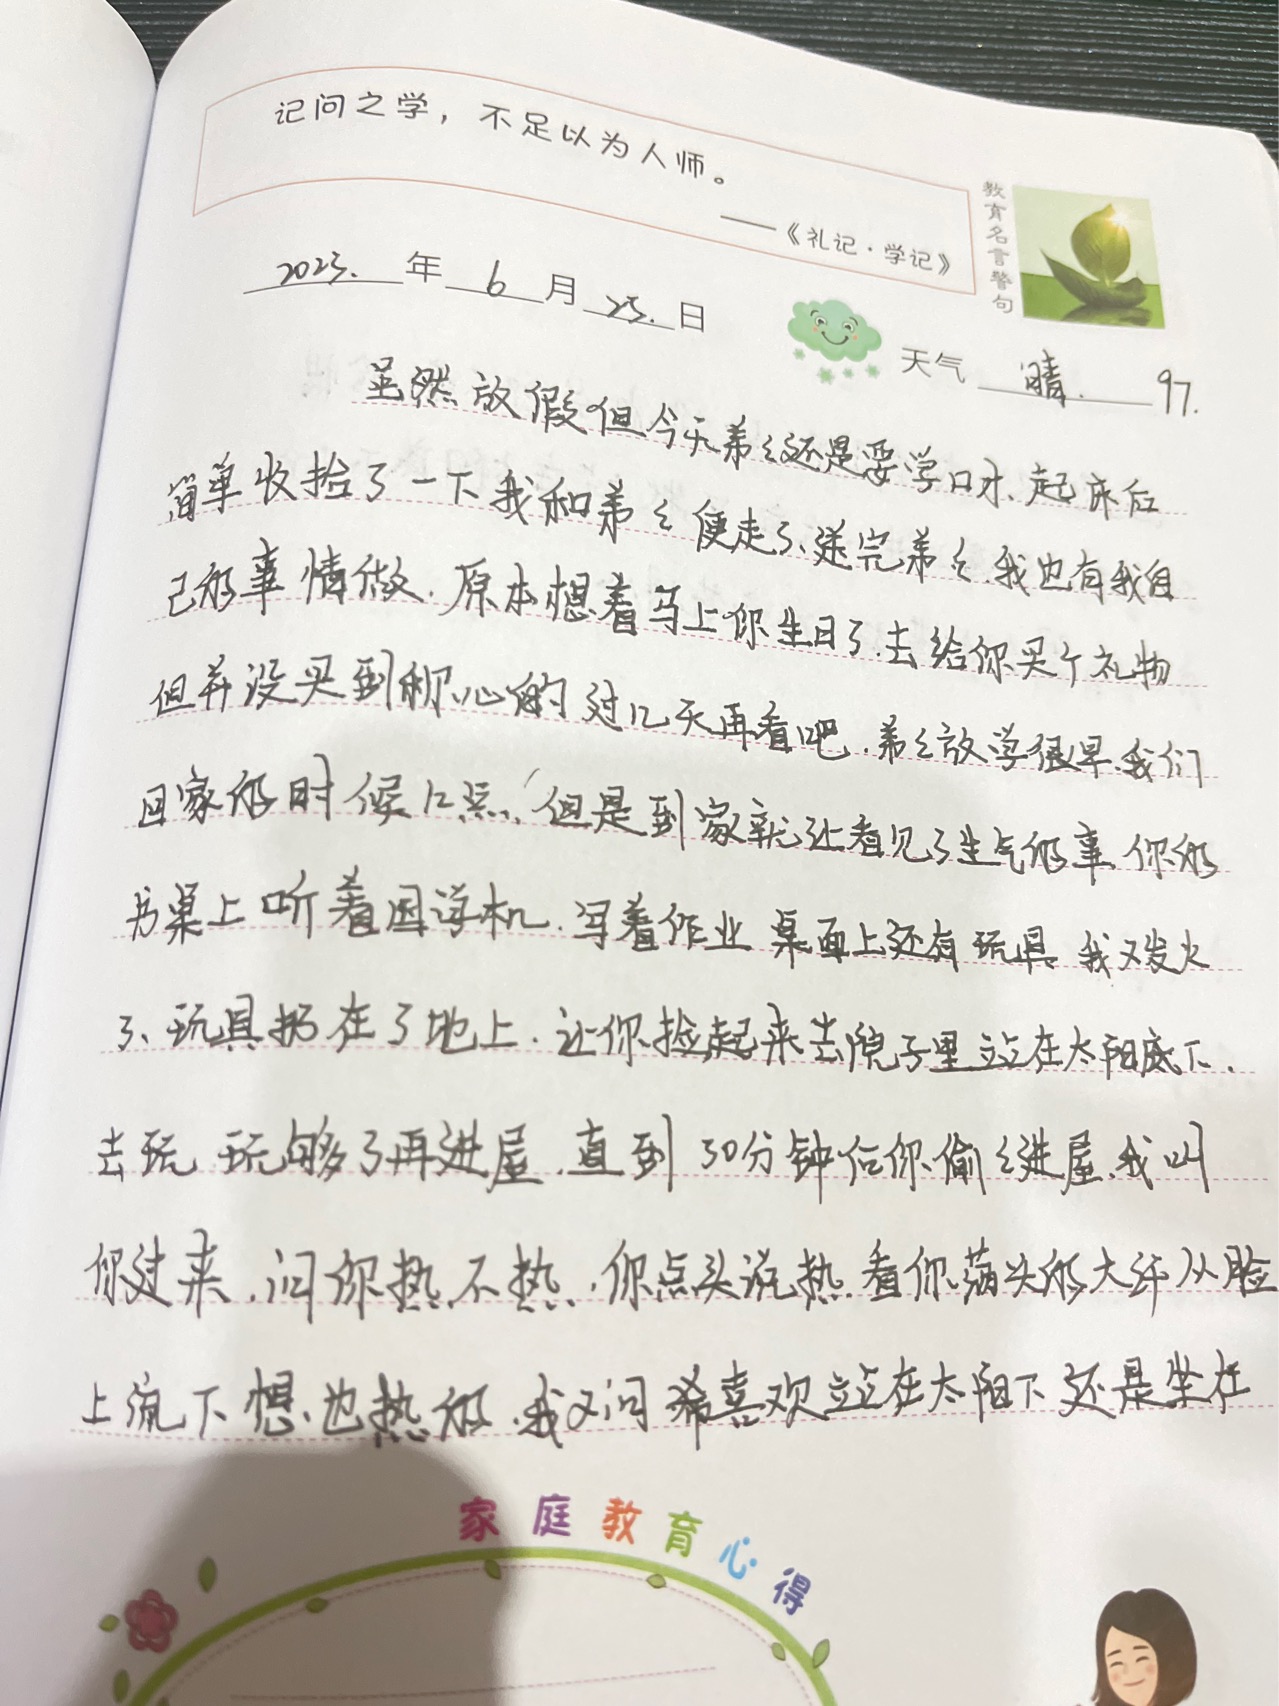 记问之学，不足以为人师。
——《礼记·学记》
教育名言警句
2023.年6月25.日
天气 晴. 97.
虽然放假但今天弟弟还是要学口才、起床后
简单收拾了一下我和弟弟便走了、送完弟弟、我也有我自
己的事情做、原本想着马上你生日了、去给你买个礼物
但并没买到称心的 过几天再看吧、弟弟放学很早、我们
回家的时候几点、但是到家就让看见了生气的事、你的
书桌上听着国学机、写着作业 桌面上还有玩具、我又发火
了、玩具扔在了地上、让你捡起来去院子里站在太阳底下、
去玩 玩够了再进屋、直到30分钟后你偷偷进屋、我叫
你过来、问你热不热、你点头说热、看你满头的大汗从脸
上流下想也热的、我又问 喜欢站在太阳下 还是坐在
家庭教育心得